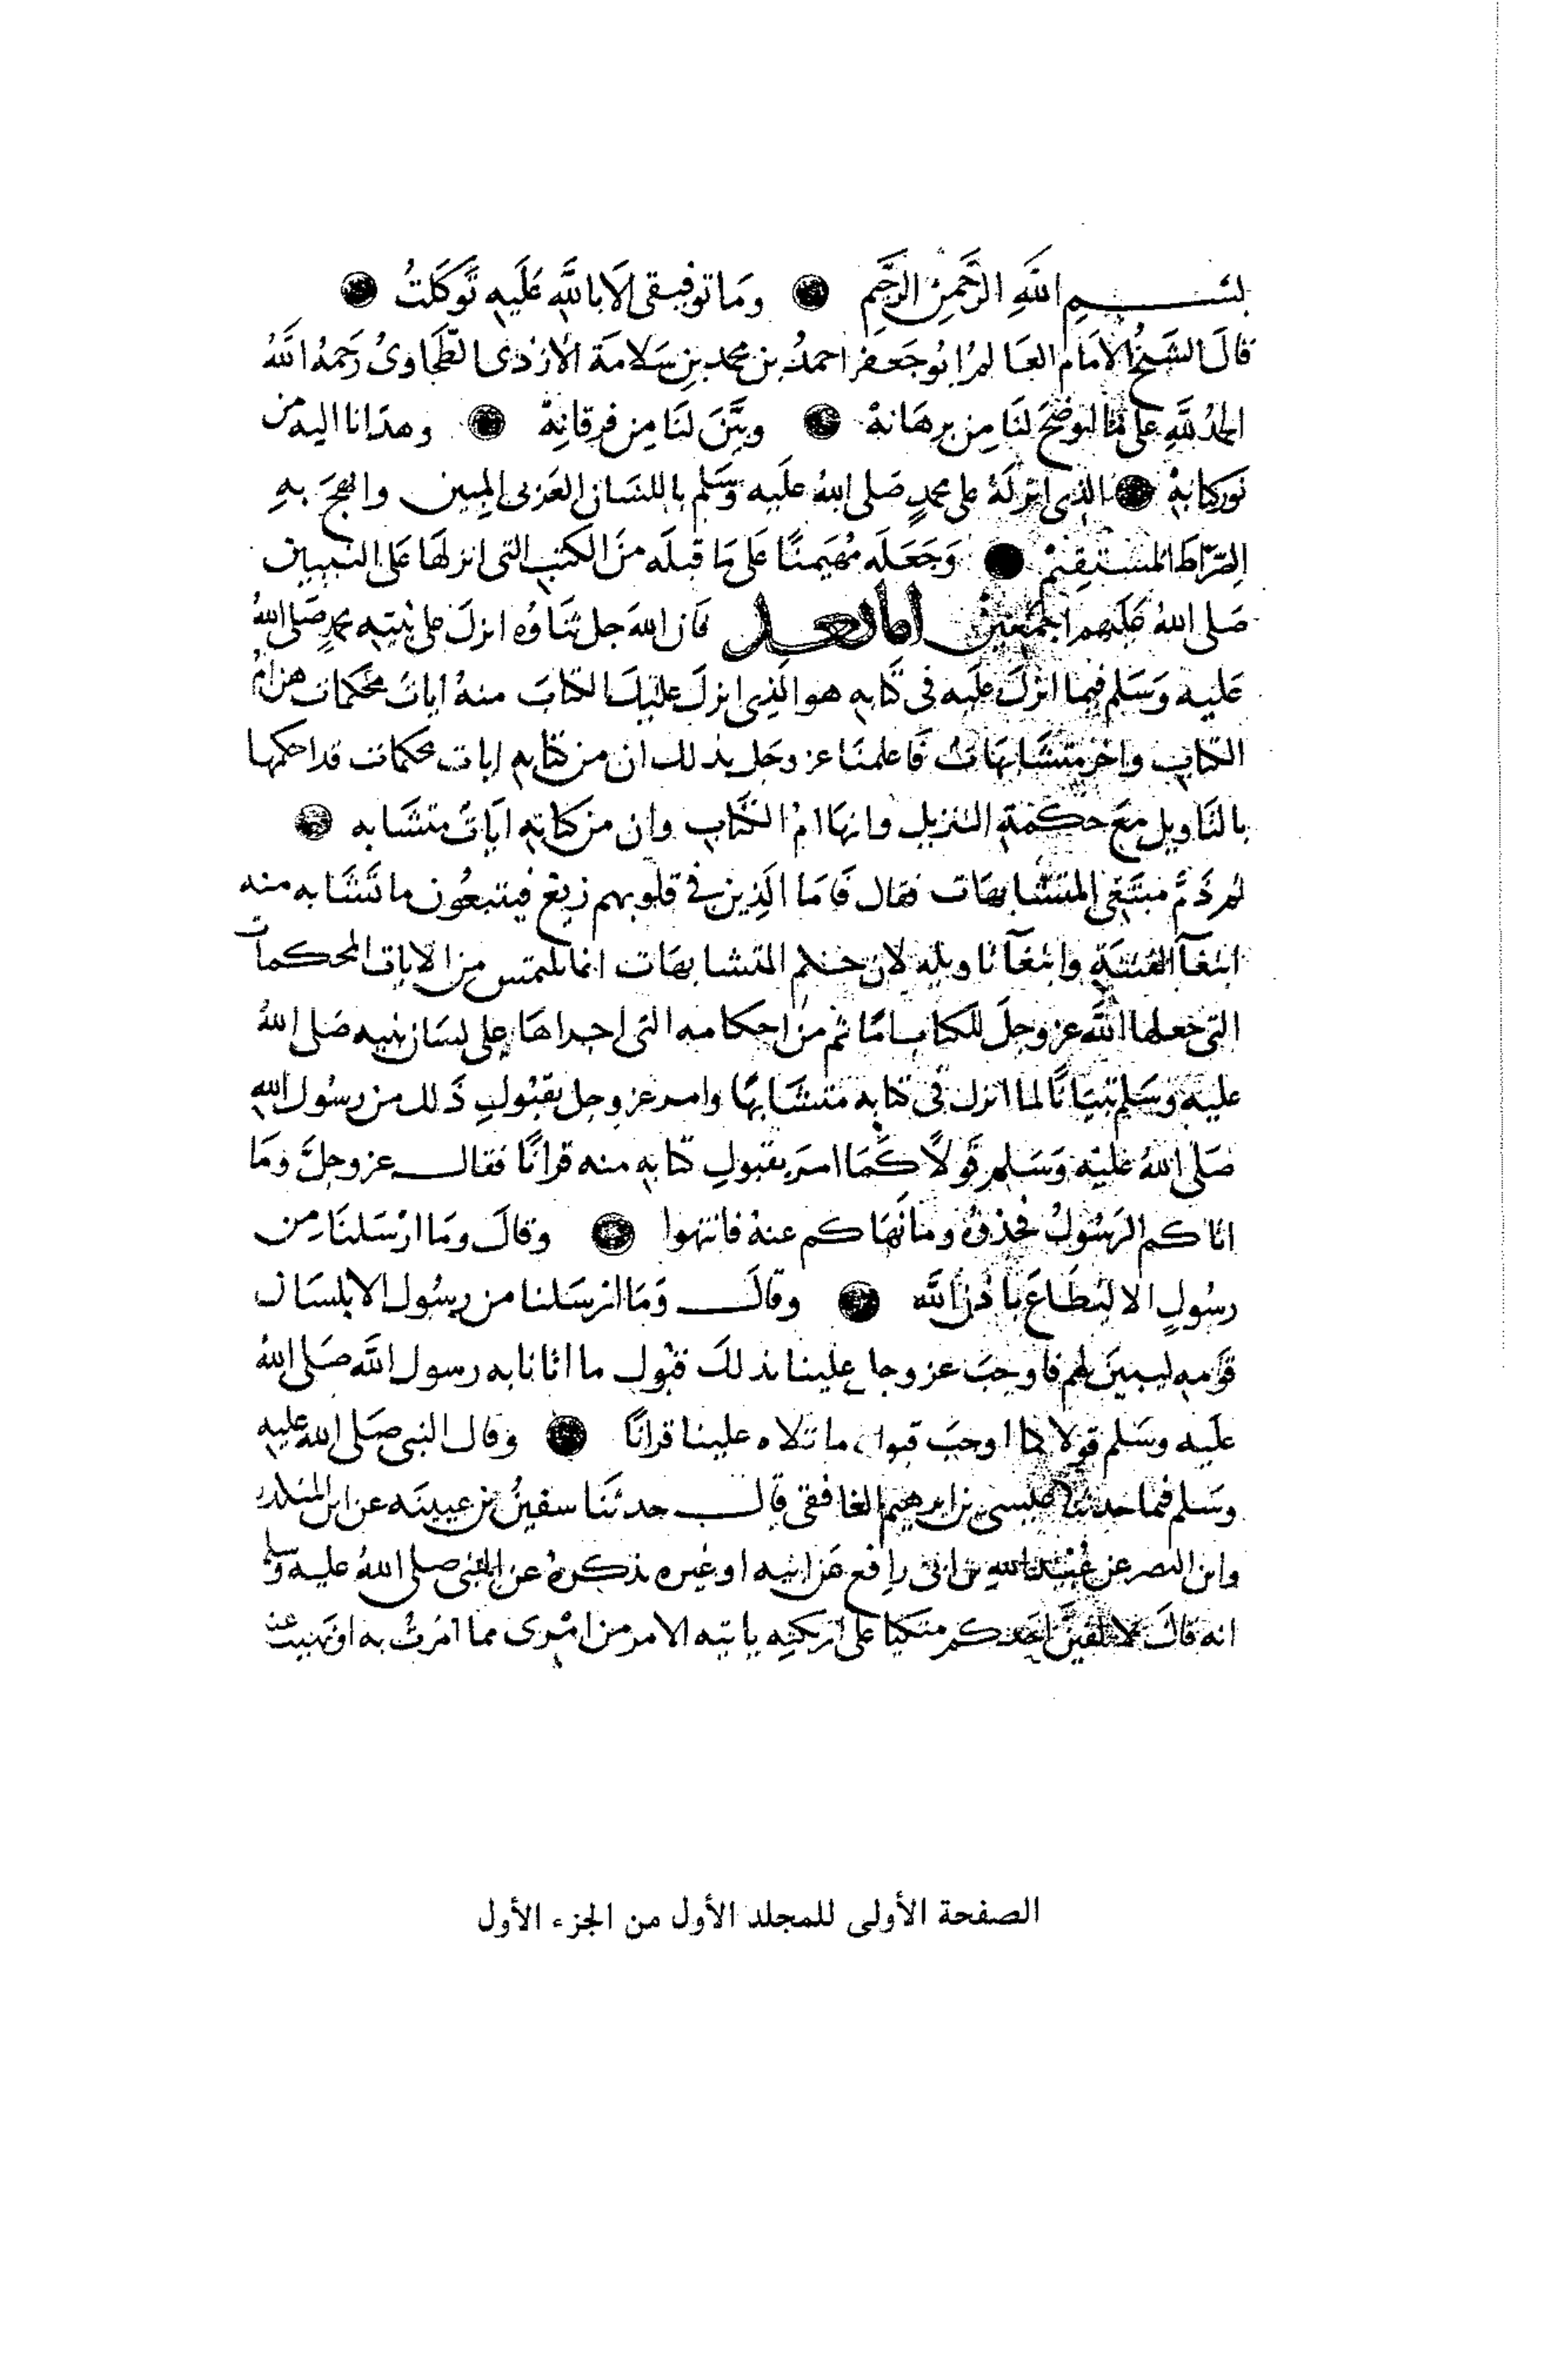 بسم الله الرحمن الرحيم وما توفيقي الا بالله عليه توكلت
قال الشيخ الامام العالم ابو جعفر احمد بن محمد بن سلامة الازدى الطحاوى رحمه الله
الحمد لله على ما اوضح لنا من برهانه وبين لنا من فرقانه وهدانا اليه من
نور كتابه الذى انزله على محمد صلى الله عليه وسلم باللسان العربى المبين وانهج به
الصراط المستقيم وجعله مهيمنا على ما قبله من الكتب التى انزلها على النبيين
صلى الله عليهم اجمعين اما بعد فان الله جل ثناؤه انزل على نبيه محمد صلى الله
عليه وسلم فيما انزل عليه فى كتابه هو الذى انزل عليك الكتاب منه ايات محكمات هن ام
الكتاب واخر متشابهات فاعلمنا عز وجل بذلك ان من كتابه ايات محكمات قد احكمها
بالتاويل مع حكمة التنزيل وانها ام الكتاب وان من كتابه ايات متشابه
ثم ذم مبتغى المتشابهات فقال فاما الذين فى قلوبهم زيغ فيتبعون ما تشابه منه
ابتغآ الفتنة وابتغآ تاويله لان حكم المتشابهات انما يلتمس من الايات المحكمات
التى جعلها الله عز وجل للكتاب اما ثم من احكامه التى اجراها على لسان نبيه صلى الله
عليه وسلم تبيانا لما انزل فى كتابه متشابها وامر عز وجل بقبول ذلك من رسول الله
صلى الله عليه وسلم قولا كما امر بقبول كتابه منه قرانا فقال عز وجل وما
اتاكم الرسول فخذوه وما نهاكم عنه فانتهوا وقال وما ارسلنا من
رسول الا ليطاع باذن الله وقال وما ارسلنا من رسول الا بلسان
قومه ليبين لهم فاوجب عز وجل علينا بذلك قبول ما اتانا به رسول الله صلى الله
عليه وسلم قولا كما اوجب قبول ما تلاه علينا قرانا وقال النبى صلى الله عليه
وسلم فيما حدثنا عيسى بن ابرهيم الغافقى قال حدثنا سفين بن عيينه عن ابن المنكدر
وابن النصر عن عبيد الله بن ابى رافع عن ابيه او غيره يذكره عن النبى صلى الله عليه وسلم
انه قال لا الفين احدكم متكيا على اريكته ياتيه الامر من امرى مما امرت به او نهيت عنه
الصفحة الأولى للمجلد الأول من الجزء الأول